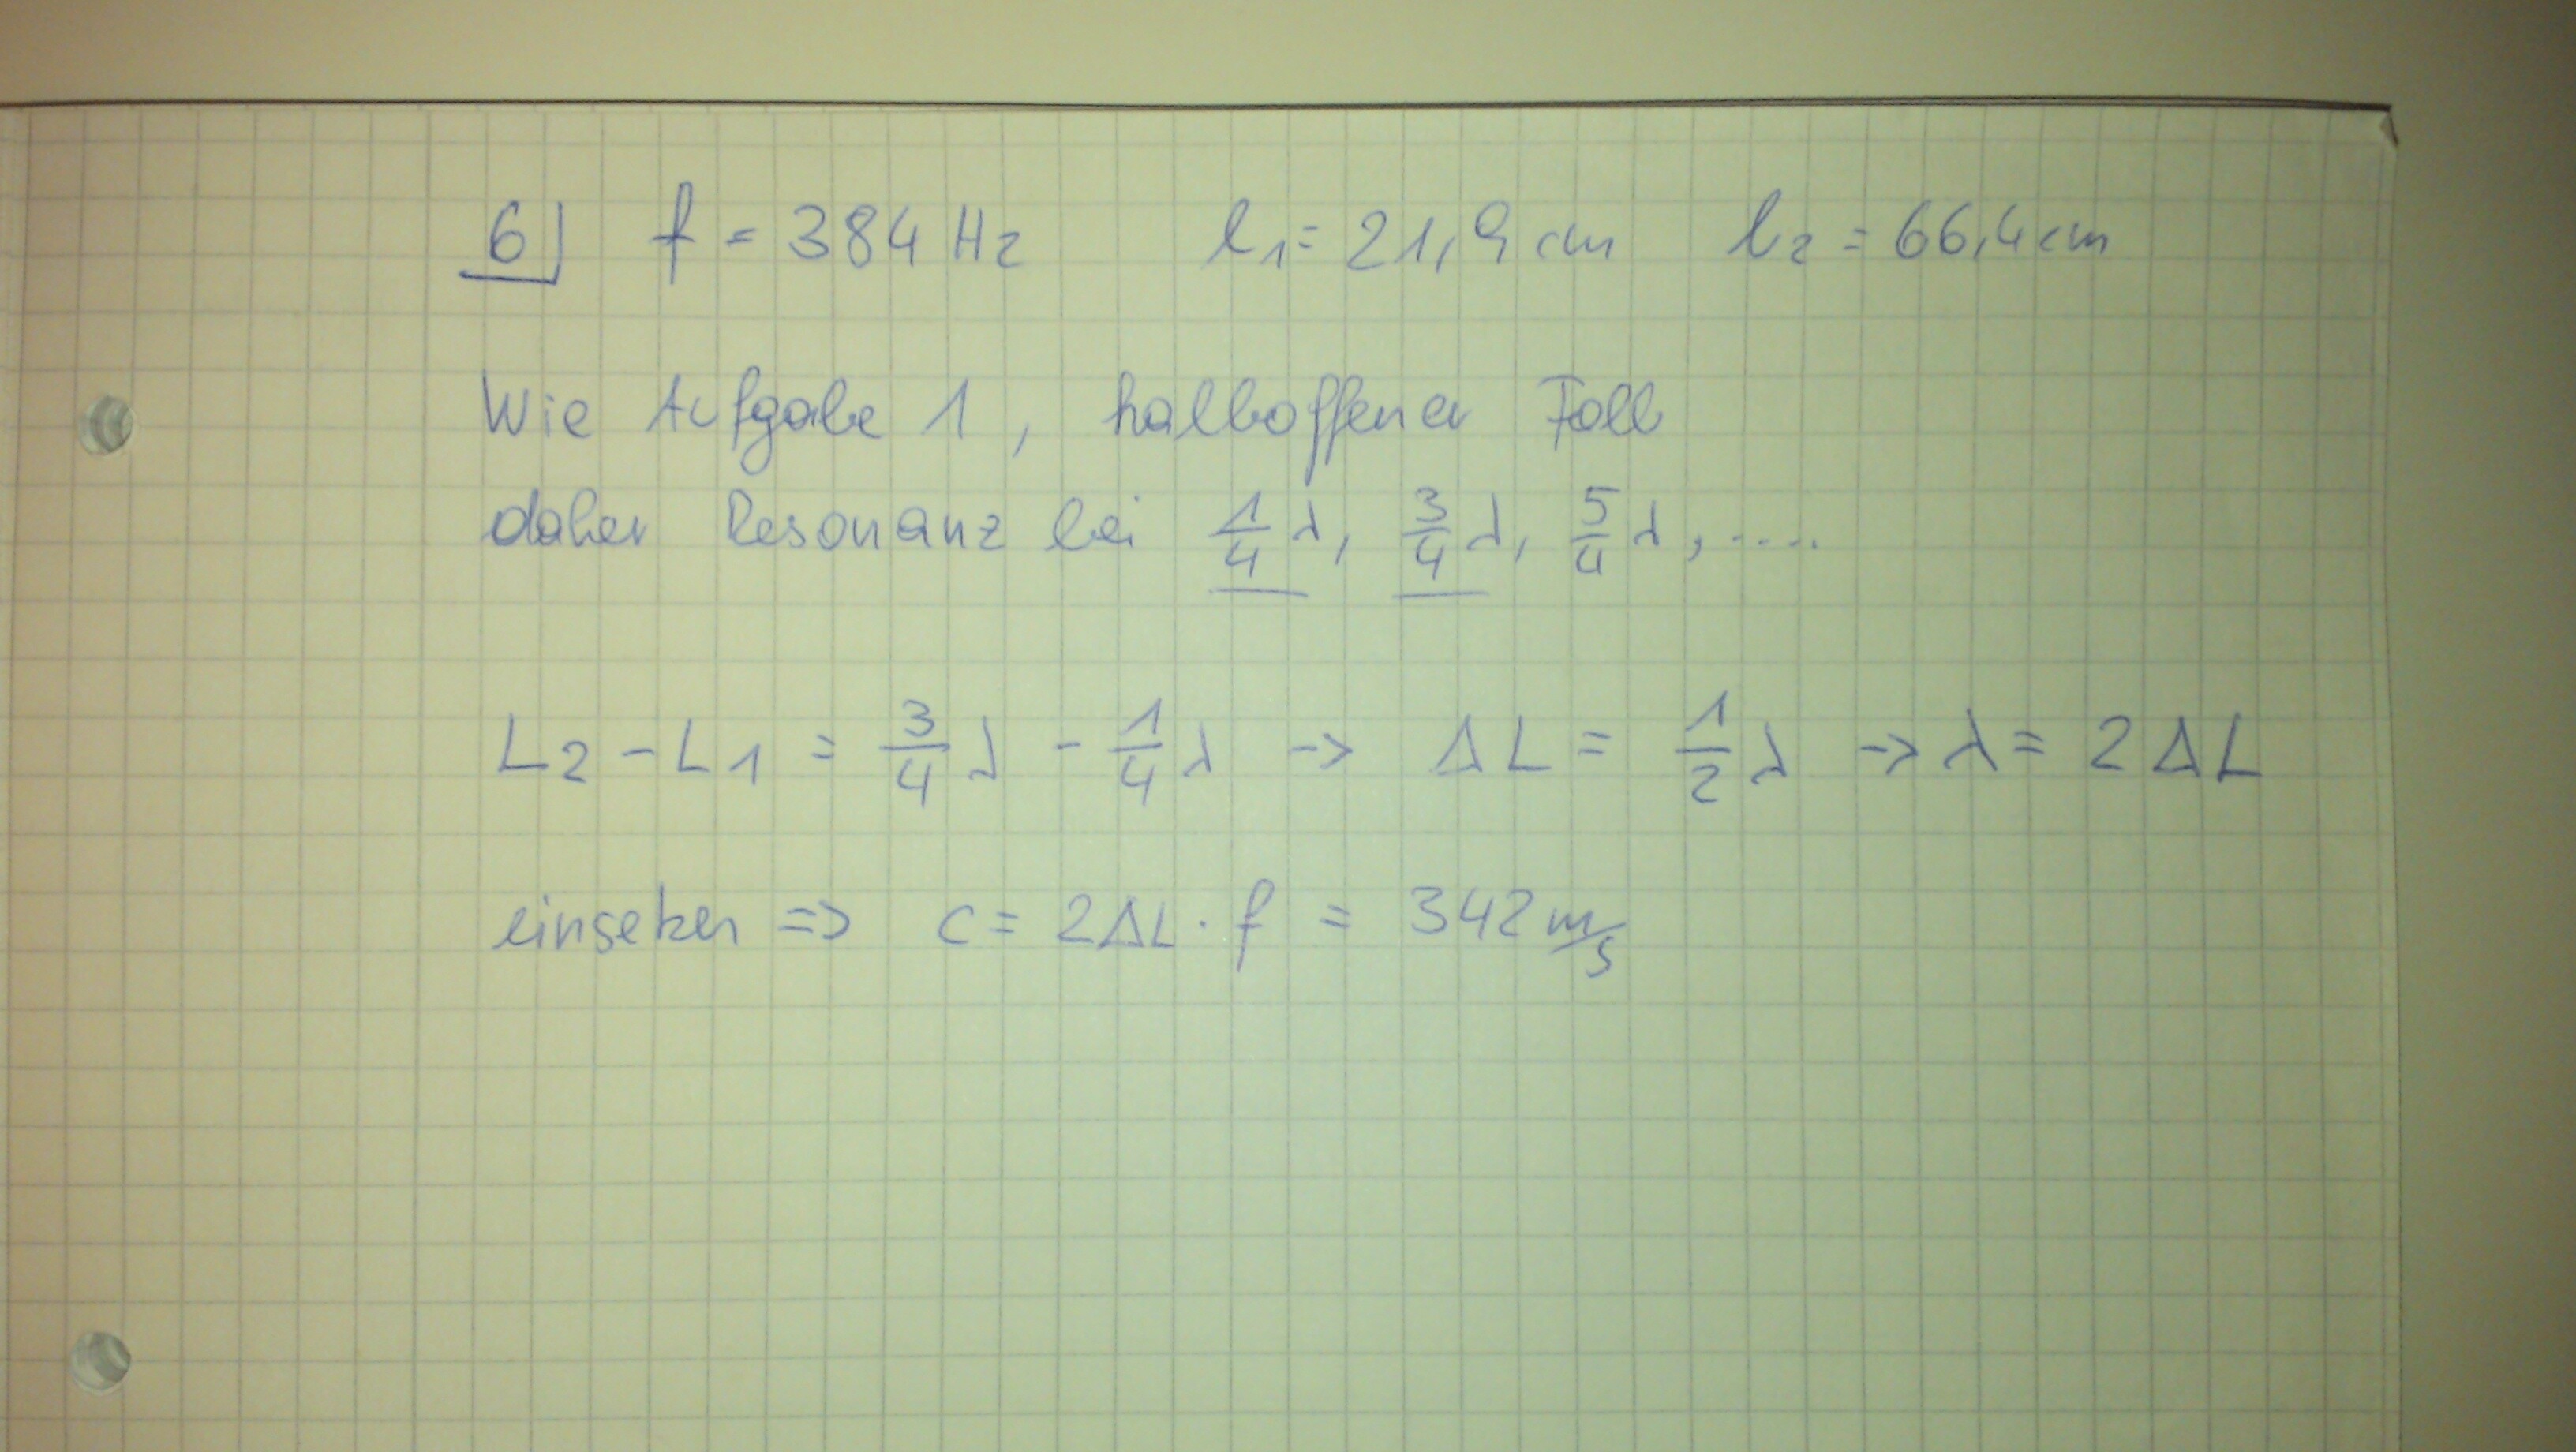 6) f = 384 Hz l₁ = 21,9 cm l₂ = 66,4 cm
Wie Aufgabe 1, halboffener Fall
daher Resonanz bei 1/4 λ, 3/4 λ, 5/4 λ, ....
L₂ - L₁ = 3/4 λ - 1/4 λ -> ΔL = 1/2 λ -> λ = 2 ΔL
einsetzen => c = 2ΔL · f = 342 m/s